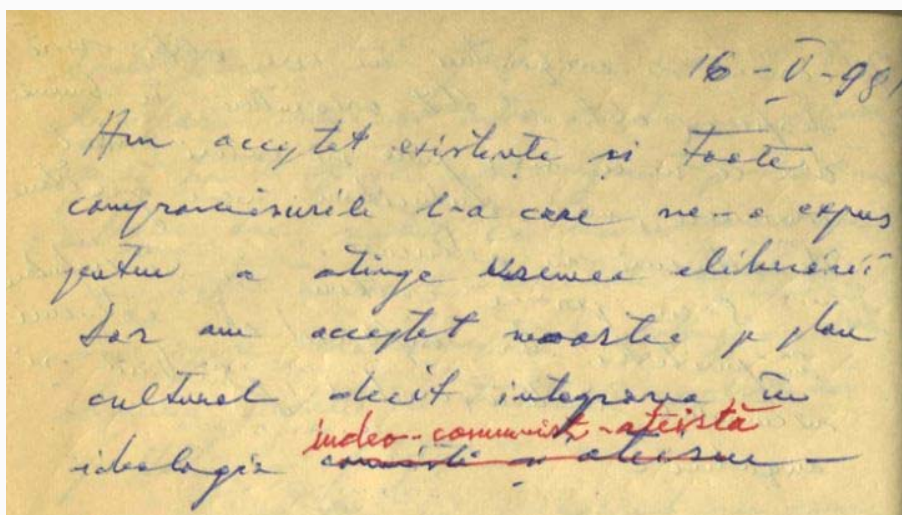 16-V-98
Am acceptat existența și toate
compromisurile l-a care ne-a expus
pentru a atinge vremea eliberării
Dar am acceptat moartea p plan
cultural decît integrarea în
iudeo-comunist-ateistă
ideologia comunistă a ateismu